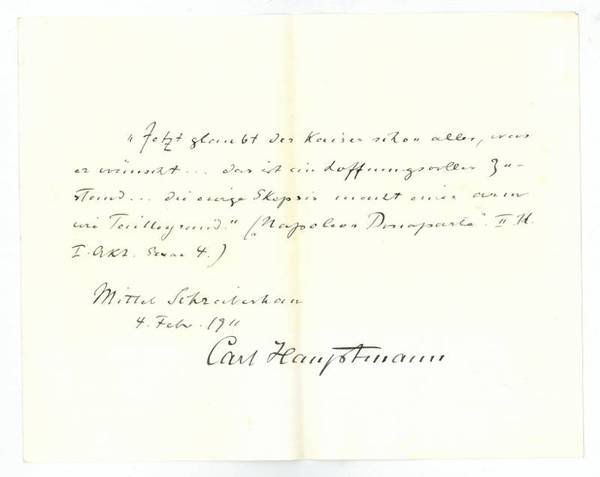 "Jetzt glaubt der Kaiser schon alles, was
er wünscht... das ist ein hoffnungsvoller Zu-
stand... die ewige Skepsis macht einen arm
wie Tailleyrand." ("Napoleon Bonaparte". II. H.
I. Akt. Szene 4.)
Mittel Schreiberhau
4. Febr. 1911
Carl Hauptmann